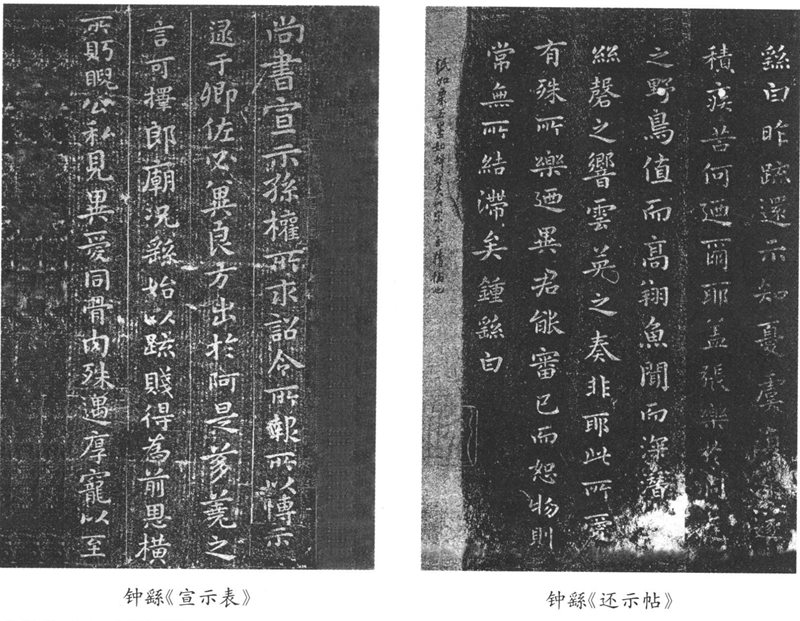 尚書宣示孫權所求詔令所報所以博示
逮于卿佐必冀良方出於阿是芻蕘之
言可擇郎廟況繇始以疏賤得為前恩橫
所眄睨公私見異愛同骨肉殊遇厚寵以至
繇白昨疏還示知憂虞
積疾苦何迺爾耶蓋張樂於洞庭
之野鳥值而高翔魚聞而深潛
絲磬之響雲英之奏非耶此所愛
有殊所樂迺異君能審己而恕物則
常無所結滯矣鍾繇白
钟繇《宣示表》
钟繇《还示帖》